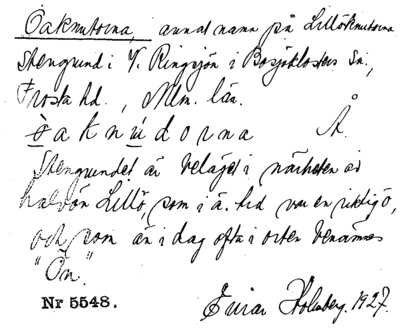 Öaknutorna, annat namn på Lillöknutorna
stengrund i V. Ringsjön i Bosjöklosters Sn.,
Frosta hd., Mlm. län.
ö̀aknúdorna Å.
Stengrundet är beläget i närheten av
halvön Lillö, som i ä. tid var en riktig ö,
och som än i dag ofta i orten benämnes
"Ön."
Nr 5548. Einar Holmberg. 1927.